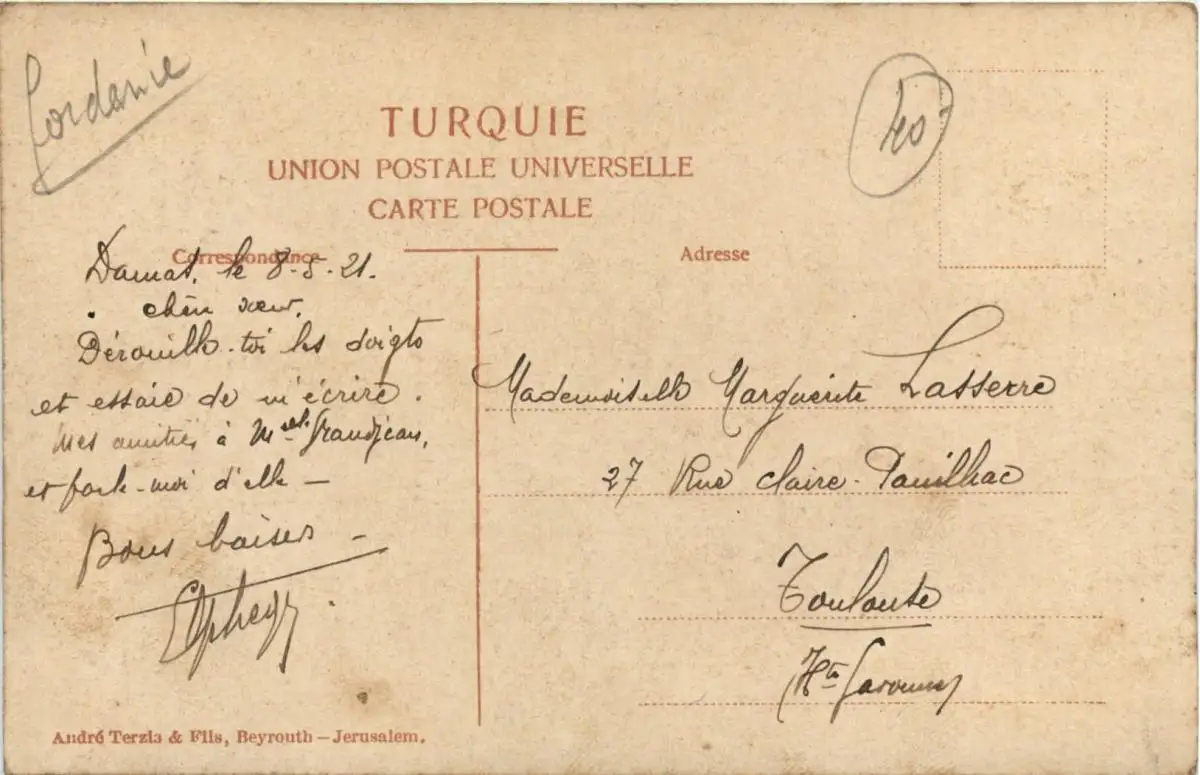 Jordanie
40
TURQUIE
UNION POSTALE UNIVERSELLE
CARTE POSTALE
Correspondance
Adresse
Damas, le 8-5-21.
chère sœur,
Dérouille-toi les doigts
et essaie de m'écrire.
Mes amitiés à Melle Grandjean,
et parle-moi d'elle —
Bons baisers —
Mademoiselle Marguerite Lasserre
27 Rue Claire-Pauilhac
Toulouse
Hte Garonne
André Terzis & Fils, Beyrouth — Jerusalem.